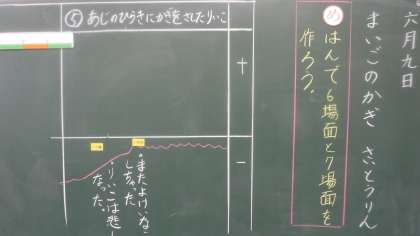 六月九日
まいごのかぎ さいとうりん
め はんで6場面と7場面を
作ろう。
+
−
⑤ あじのひらきにかぎをさしたりいこ
・またよけいな
しちゃった。
・りいこは悲し
なった。